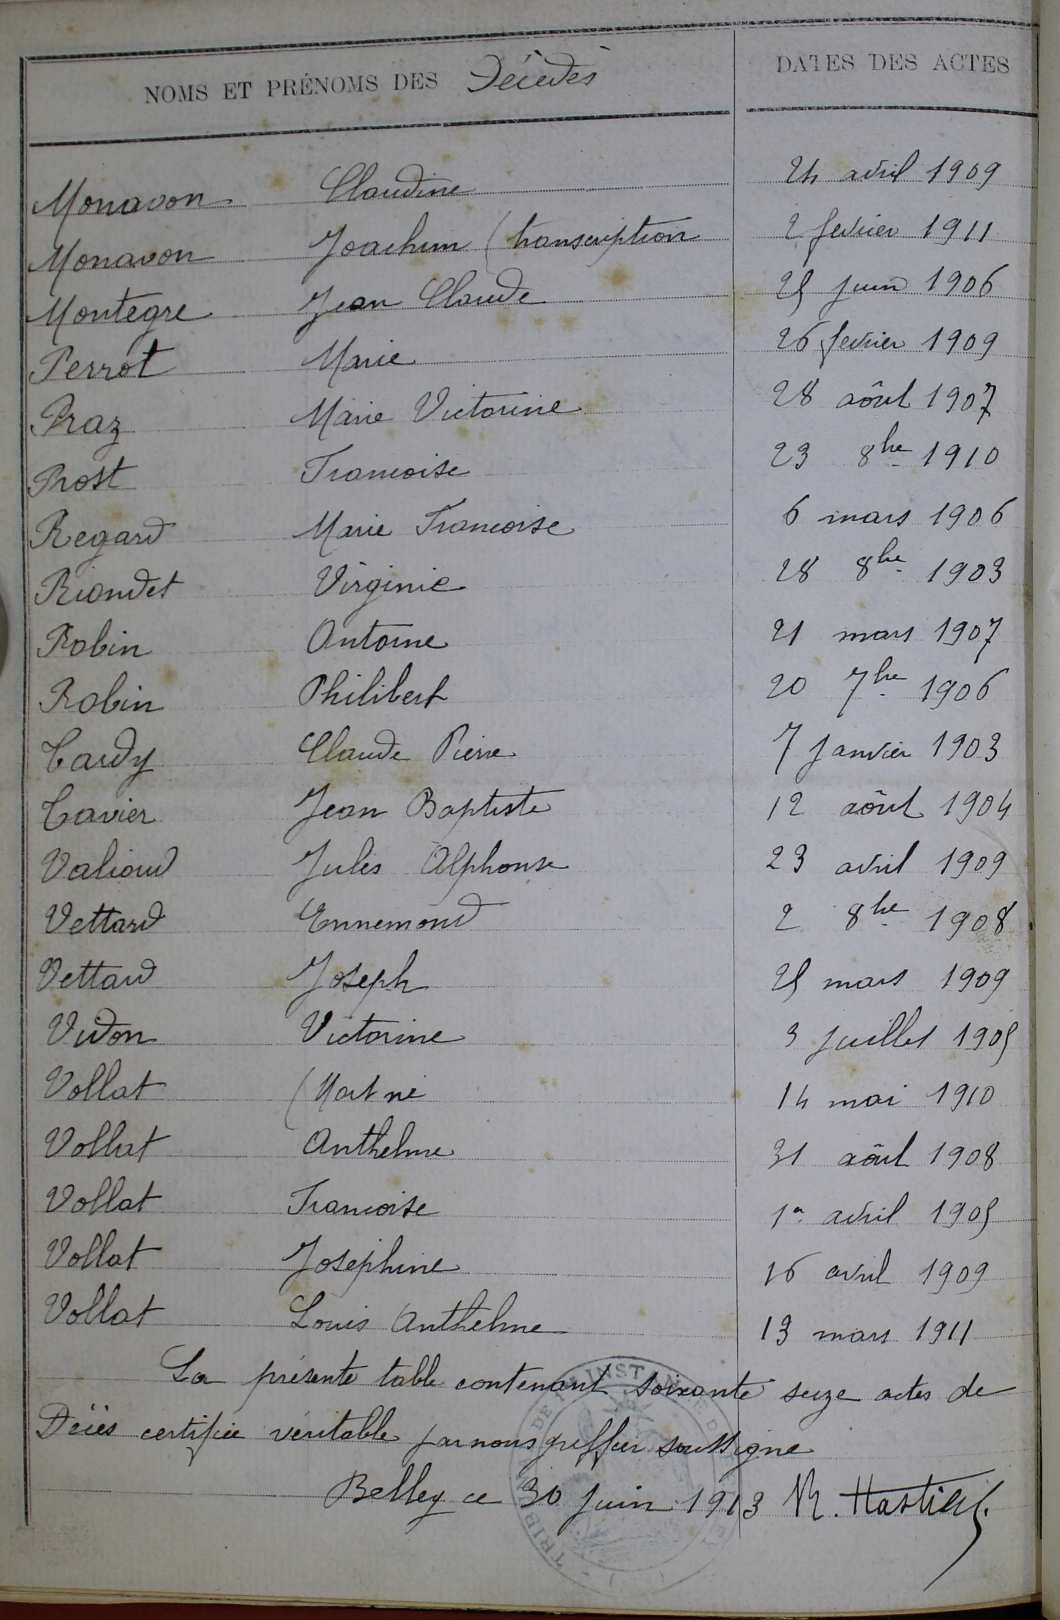 NOMS ET PRÉNOMS DES Décédés DATES DES ACTES
Monavon Claudine 24 avril 1909
Monavon Joachim (transcription 2 fevrier 1911
Montegre Jean Claude 25 juin 1906
Perrot Marie 26 fevrier 1909
Praz Marie Victorine 28 août 1907
Prost Francoise 23 8bre 1910
Regard Marie Francoise 6 mars 1906
Riondet Virginie 28 8bre 1903
Robin Antoine 21 mars 1907
Robin Philibert 20 7bre 1906
Tardy Claude Pierre 7 janvier 1903
Tavier Jean Baptiste 12 août 1904
Valioud Jules Alphonse 23 avril 1909
Vettard Ennemond 2 8bre 1908
Vettard Joseph 25 mars 1909
Vidon Victorine 3 juillet 1905
Vollat (Mort né 14 mai 1910
Vollat Anthelme 31 août 1908
Vollat Francoise 1er avril 1905
Vollat Joséphine 16 avril 1909
Vollat Louis Anthelme 13 mars 1911
La présente table contenant soixante seize actes de
Décès certifiée véritable par nous greffier soussigné
Belley ce 30 juin 1913